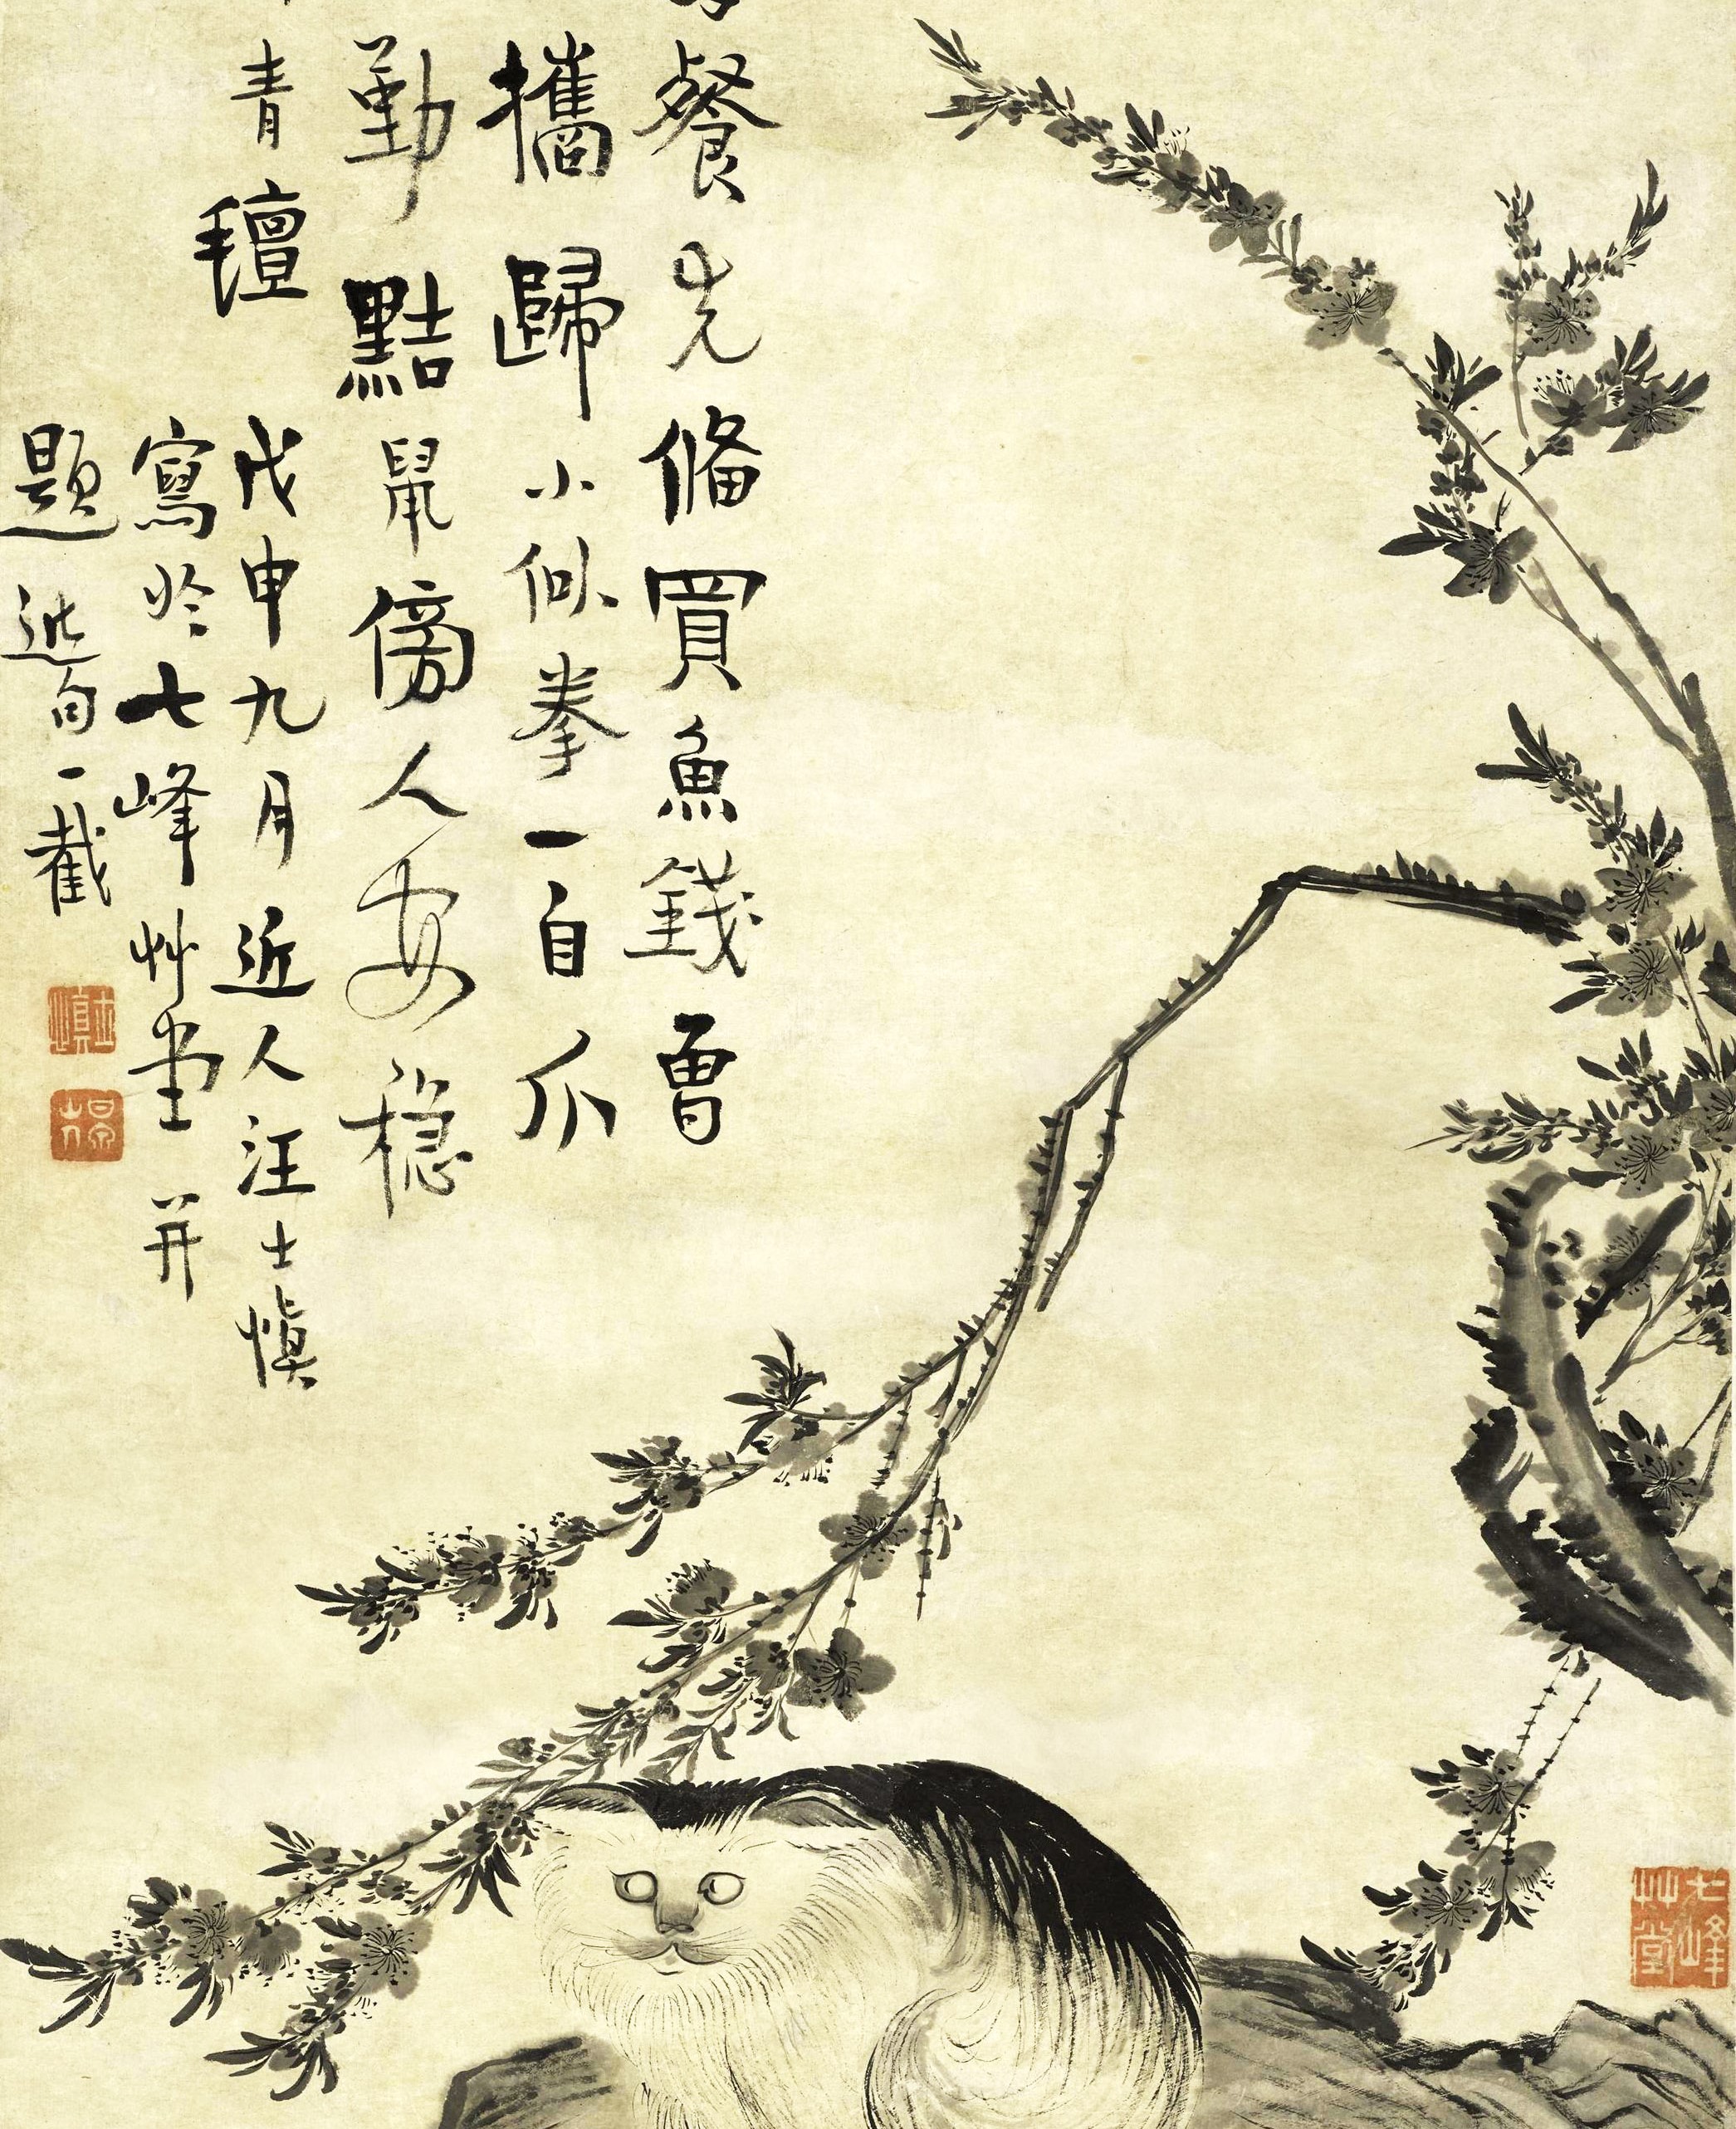 餐先偹買魚錢曾
攜歸小似拳一自爪
勤黠鼠傍人安穩
青氊 戊申九月近人汪士慎
寫於七峰艸堂并
題句一截
七峰艸堂